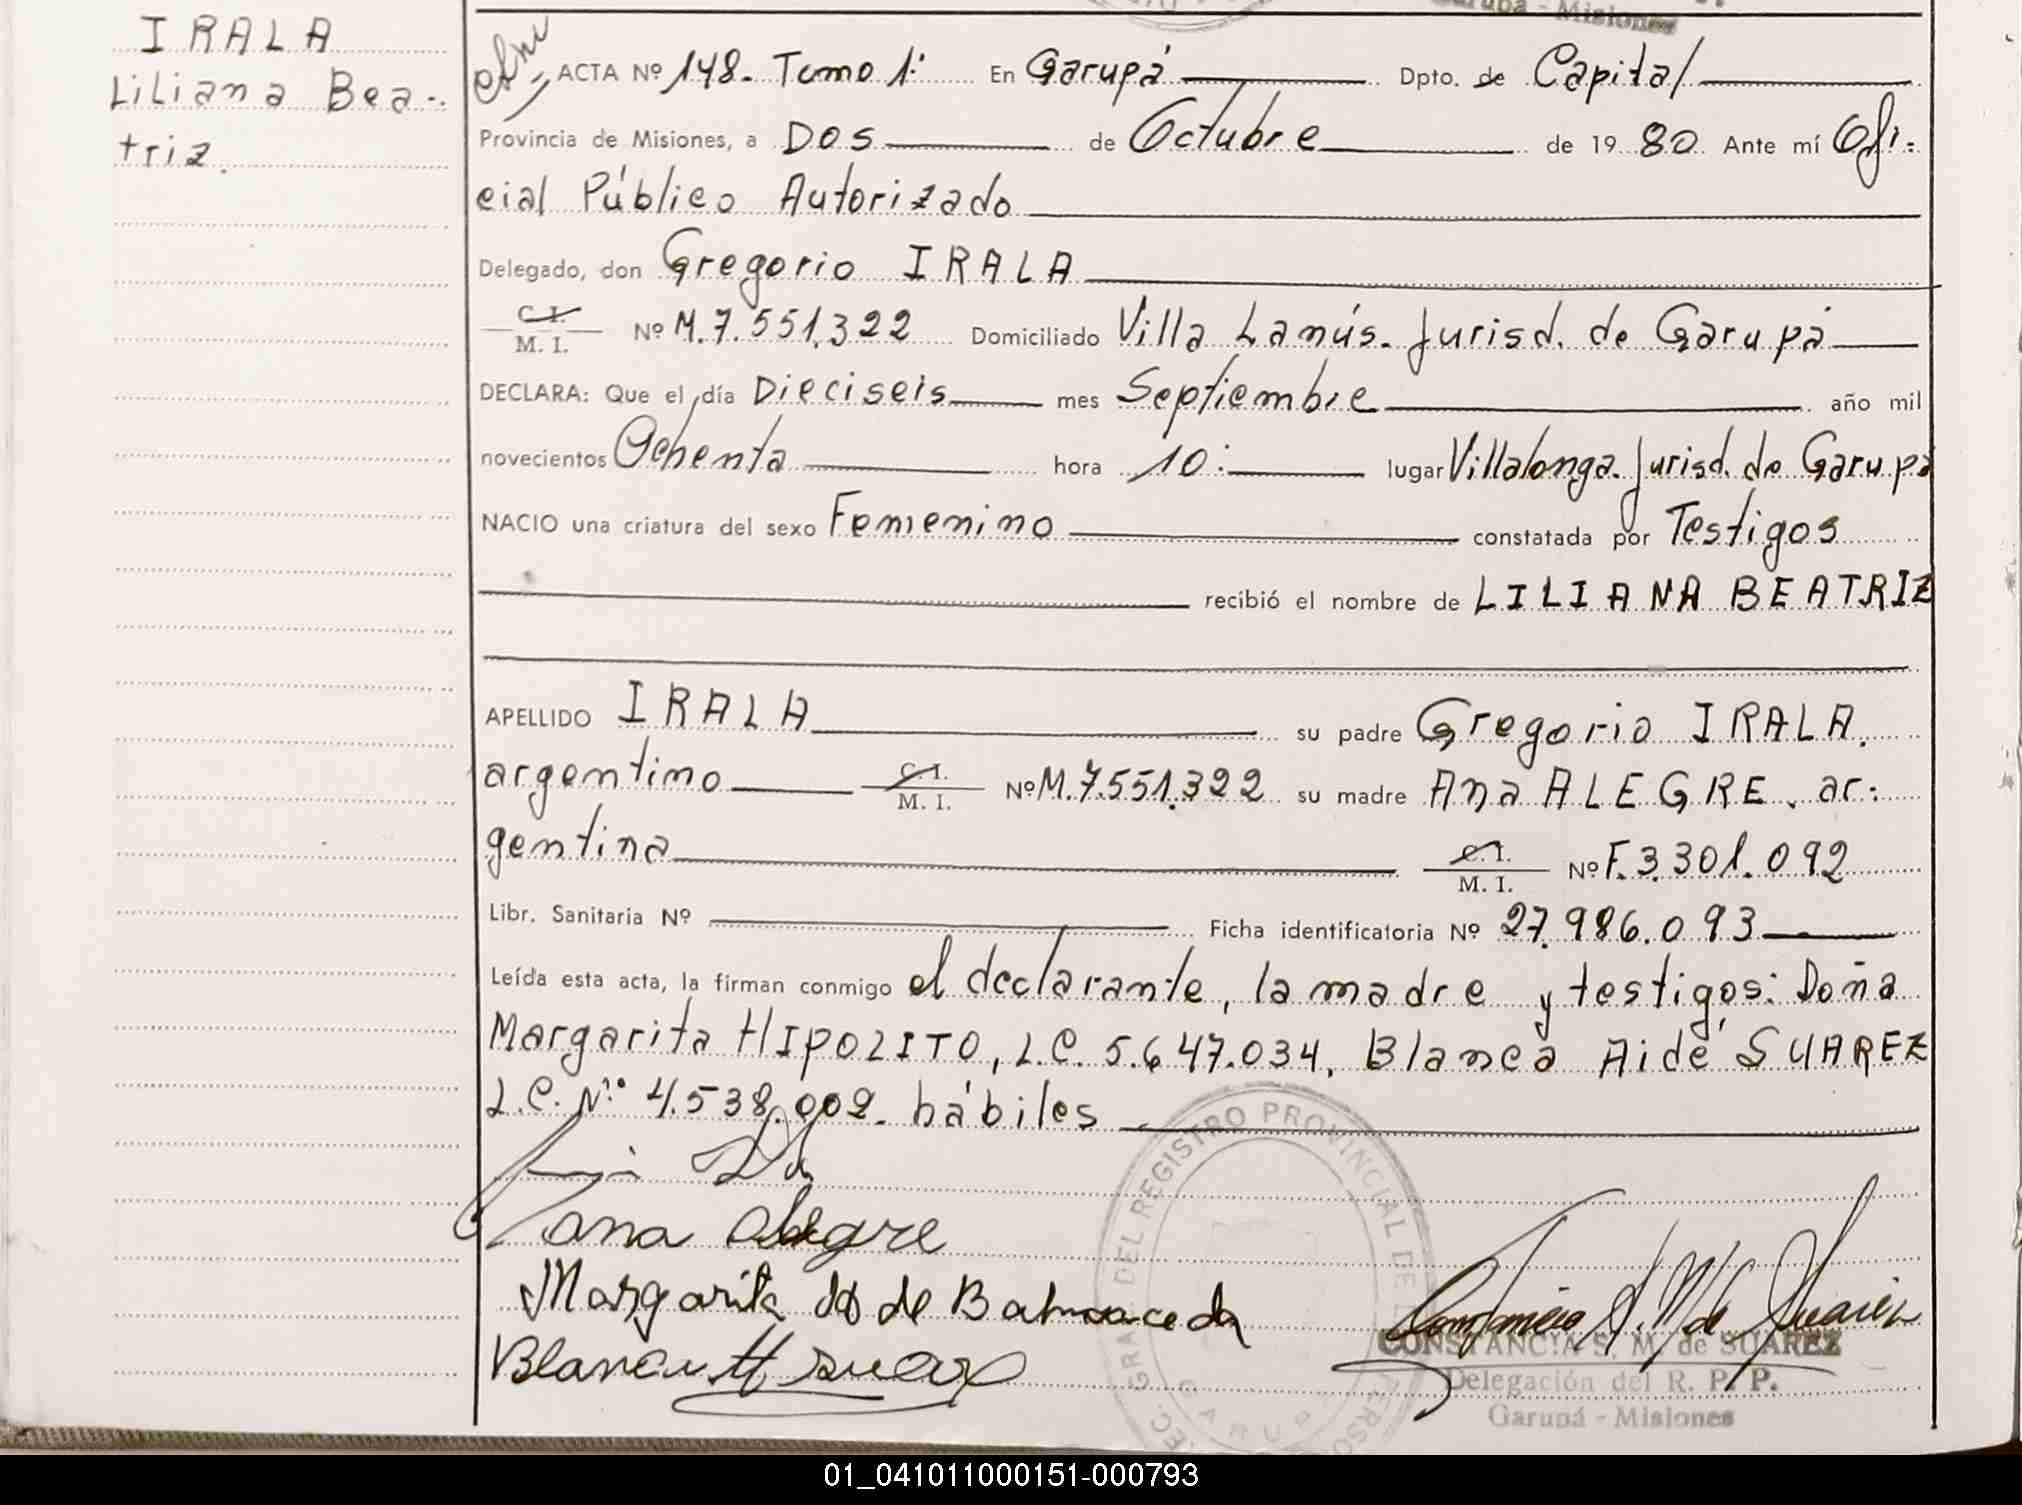 Garupá - Misiones
IRALA
Liliana Bea-
triz.
ACTA Nº 148. Tomo 1º En Garupá Dpto. de Capital
Provincia de Misiones, a Dos de Octubre de 1980 Ante mí Ofi-
cial Público Autorizado
Delegado, don Gregorio IRALA
C.I.
M. I. Nº M.7.551.322 Domiciliado Villa Lanús. Jurisd. de Garupá
DECLARA: Que el día Dieciseis mes Septiembre año mil
novecientos Ochenta hora 10: lugar Villalonga. Jurisd. de Garupá
NACIO una criatura del sexo Femenino constatada por Testigos
recibió el nombre de LILIANA BEATRIZ
APELLIDO IRALA su padre Gregorio IRALA.
argentino C.I. M. I. Nº M.7.551.322 su madre Ana ALEGRE. ar-
gentina C.I. M. I. Nº F.3.301.092
Libr. Sanitaria Nº Ficha identificatoria Nº 27.986.093
Leída esta acta, la firman conmigo el declarante, la madre y testigos: Doña
Margarita HIPOLITO, L.C. 5.647.034, Blanca Aidé SUAREZ
L.C. Nº 4.538.002. hábiles
ana Alegre
Margarita H de Balmaceda
Blanca H Suarez
GRAL DEL REGISTRO PROVINCIAL DE
GARUPA
CONSTANCIA S. M. de SUAREZ
Delegación del R. P. P.
Garupá - Misiones
01_041011000151-000793